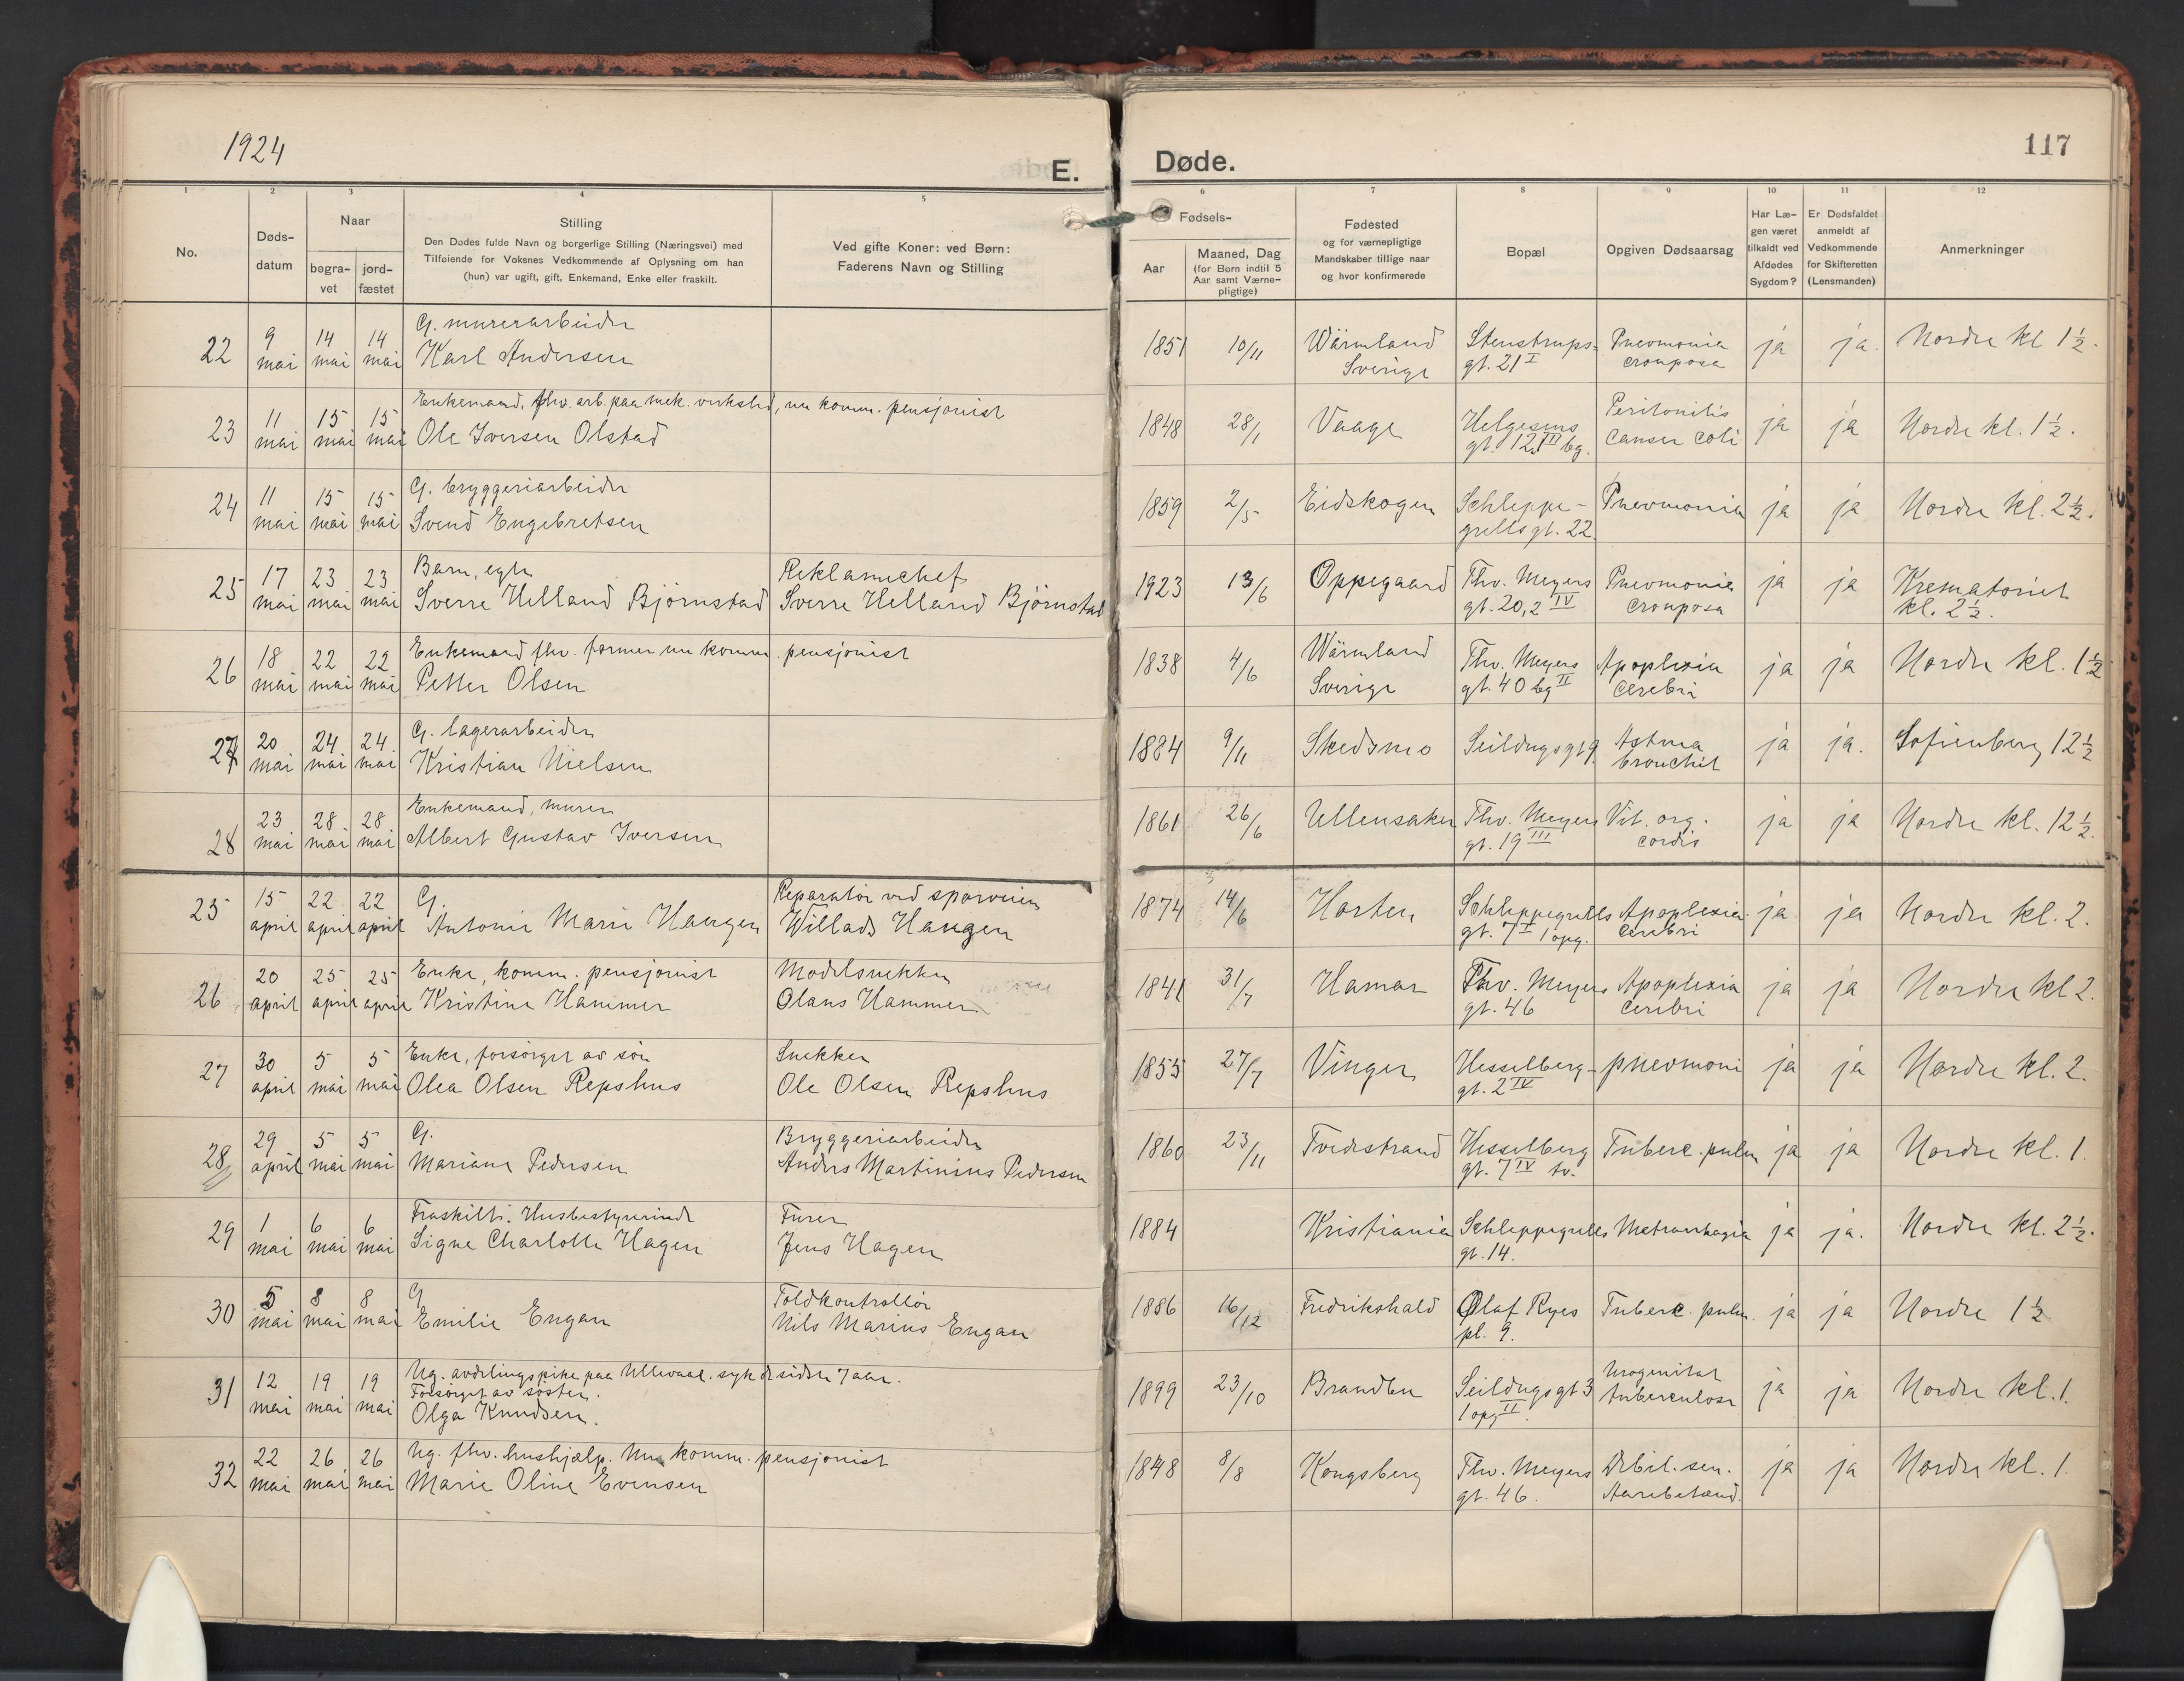 1924
E. Døde.
117
1 2 3 4 5 6 7 8 9 10 11 12
No.
Døds-
datum
Naar
begra-
vet
jord-
fæstet
Stilling
Den Dødes fulde Navn og borgerlige Stilling (Næringsvei) med
Tilføiende for Voksnes Vedkommende af Oplysning om han
(hun) var ugift, gift, Enkemand, Enke eller fraskilt.
Ved gifte Koner: ved Børn:
Faderens Navn og Stilling
Fødsels-
Aar
Maaned, Dag
(for Børn indtil 5
Aar samt Værne-
pligtige)
Fødested
og for værnepligtige
Mandskaber tillige naar
og hvor konfirmerede
Bopæl
Opgiven Dødsaarsag
Har Læ-
gen været
tilkaldt ved
Afdødes
Sygdom?
Er Dødsfaldet
anmeldt af
Vedkommende
for Skifteretten
(Lensmanden)
Anmerkninger
G. murerarbeider
22 9 mai 14 mai 14 mai Karl Andersen 1851 10/11 Wärmland Sverige Stenstrups- gt. 21 I Pneumonia crouposa ja ja. Nordre kl 1½.
Enkemand, fhv. arb. paa mek. verksted, nu komm. pensjonist
23 11 mai 15 mai 15 mai Ole Iversen Olstad 1848 28/1 Vaage Helgesens gt. 12 bg. Peritonitis Canser coli ja ja Nordre kl. 1½.
G. bryggeriarbeider
24 11 mai 15 mai 15 mai Svend Engebretsen 1859 2/5 Eidskogen Schleppe- grellsgt. 22. Pneumonia ja ja Nordre kl. 2½.
Barn, egte Reklamechef
25 17 mai 23 mai 23 mai Sverre Helland Björnstad Sverre Helland Björnstad 1923 13/6 Oppegaard Thv. Meyers gt. 20,2 IV Pneumonia crouposa ja ja Krematoriet kl. 2½.
Enkemand fhv. former nu komm. pensjonist
26 18 mai 22 mai 22 mai Petter Olsen 1838 4/6 Wärmland Sverige Thv. Meyers gt. 40 bg II Apoplexia cerebri ja ja Nordre kl. 1½
G. lagerarbeider
27 20 mai 24 mai 24 mai Kristian Nielsen 1884 9/11 Skedsmo Seildugsgt 9. Astma bronchit ja ja. Sofienberg 12½
Enkemand, murer
28 23 mai 28 mai 28 mai Albert Gustav Iversen 1861 26/6 Ullensaker Thv. Meyers gt. 19 III Vit. org. cordis ja ja Nordre kl. 12½.
G. Reparatør ved sporveien
25 15 april 22 april 22 april Antonie Marie Haugen Willads Haugen 1874 14/6 Horten Schleppegrells gt. 7 I 1 opg. Apoplexia cerebri ja ja Nordre kl. 2.
Enke, komm. pensjonist Modelsnekker
26 20 april 25 april 25 april Kristine Hammer Olaus Hammer 1841 31/7 Hamar Thv. Meyers gt. 46 Apoplexia cerebri ja ja Nordre kl 2.
Enke, forsørget av søn Snekker
27 30 april 5 mai 5 mai Olea Olsen Repshus Ole Olsen Repshus 1855 27/7 Vinger Hesselberg- gt. 2 IV pneumoni ja ja Nordre kl. 2.
G. Bryggeriarbeider
28 29 april 5 mai 5 mai Mariane Pedersen Anders Martinius Pedersen 1860 23/11 Tvedestrand Hesselberg gt. 7 IV tv. Tuberc. pulm ja ja Nordre kl. 1.
Fraskilt. Husbestyrerinde Furer
29 1 mai 6 mai 6 mai Signe Charlotte Hagen Jens Hagen 1884 Kristiania Schleppegrells gt. 14. Metrorrhagia ja ja. Nordre kl. 2½.
G Toldkontrollør
30 5 mai 8 mai 8 mai Emilie Engan Nils Marius Engan 1886 16/12 Fredrikshald Olaf Ryes pl. 9. Tuberc. pulm. ja ja Nordre 1½
Ug. avdelingspike paa Ullevaal. syk de sidste 7 aar.
Forsørget av søster.
31 12 mai 19 mai 19 mai Olga Knudsen. 1899 23/10 Brandbu Seildugsgt 3 1 opg II. Urogenital tuberculose ja ja Nordre kl. 1.
Ug. fhv. hushjælp. Nu komm. pensjonist
32 22 mai 26 mai 26 mai Marie Oline Evensen 1848 8/8 Kongsberg Thv. Meyers gt. 46. Debil. sen. Aarebetænd. ja ja Nordre kl. 1.